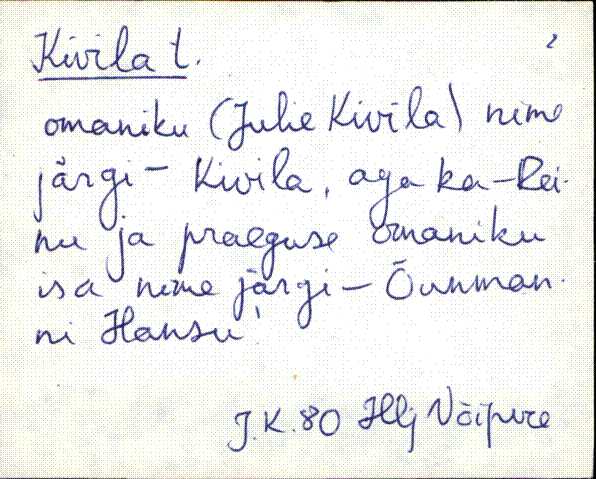 Kivila t. 2
omaniku (Julie Kivila) nime
järgi - Kivila, aga ka - Rei-
nu ja praeguse omaniku
isa nime järgi - Õunman-
ni Hansu!
J.K. 80 Hlj Võipere